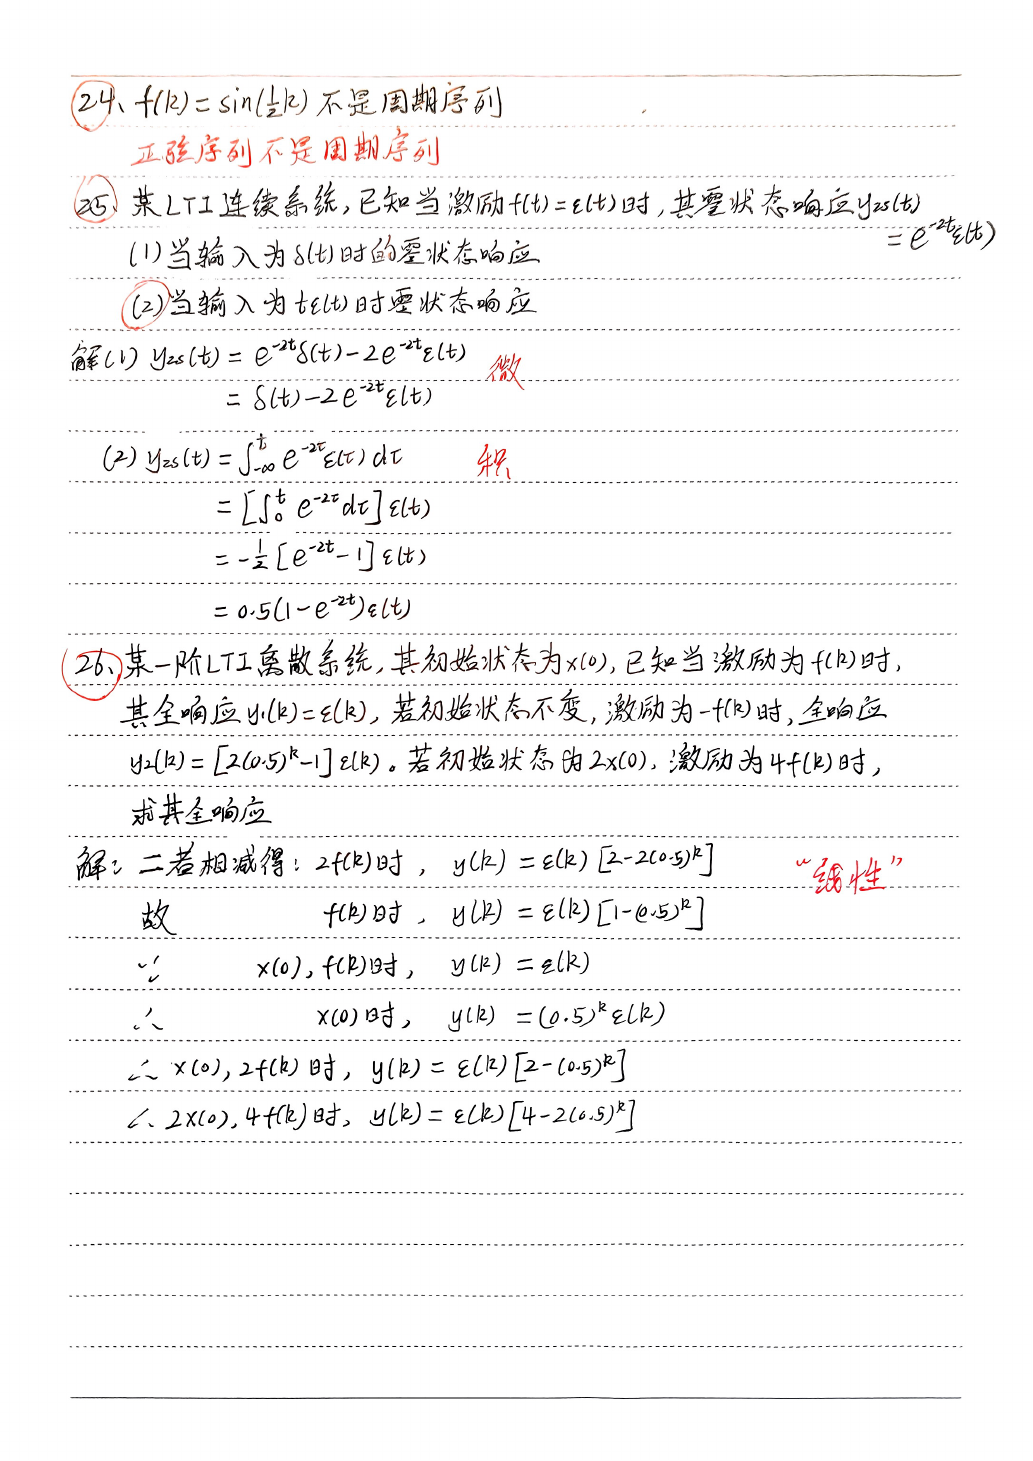 24、f(k)=sin(½k) 不是周期序列
正弦序列不是周期序列
25、某LTI连续系统,已知当激励f(t)=ε(t)时,其零状态响应yzs(t)
=e^{-2t}ε(t)
(1)当输入为δ(t)时的零状态响应
(2)当输入为tε(t)时零状态响应
解(1) yzs(t) = e^{-2t}δ(t)-2e^{-2t}ε(t) 微
= δ(t)-2e^{-2t}ε(t)
(2) yzs(t) = ∫_{-∞}^{t} e^{-2τ}ε(τ)dτ 积
= [∫_{0}^{t} e^{-2τ}dτ]ε(t)
= -½[e^{-2t}-1]ε(t)
= 0.5(1-e^{-2t})ε(t)
26、某一阶LTI离散系统,其初始状态为x(0),已知当激励为f(k)时,
其全响应y₁(k)=ε(k),若初始状态不变,激励为-f(k)时,全响应
y₂(k)=[2(0.5)^k-1]ε(k)。若初始状态为2x(0),激励为4f(k)时,
求其全响应
解:二者相减得:2f(k)时, y(k)=ε(k)[2-2(0.5)^k] “线性”
故 f(k)时, y(k)=ε(k)[1-(0.5)^k]
∵ x(0),f(k)时, y(k)=ε(k)
∴ x(0)时, y(k)=(0.5)^kε(k)
∴ x(0),2f(k)时, y(k)=ε(k)[2-(0.5)^k]
∴ 2x(0),4f(k)时, y(k)=ε(k)[4-2(0.5)^k]